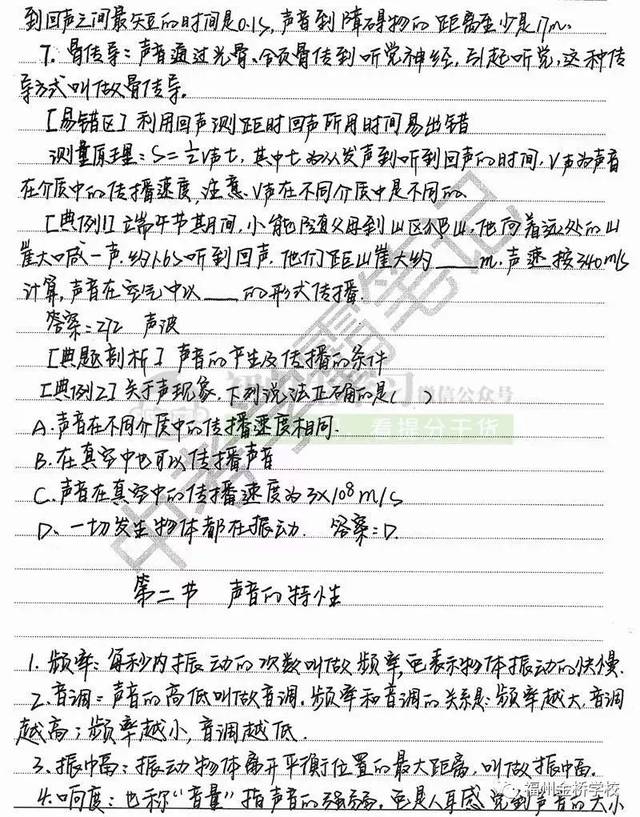 到回声之间最短的时间是0.1s,声音到障碍物的距离至少是17m.
7. 骨传导:声音通过头骨、颌骨传到听觉神经,引起听觉,这种传
导方式叫做骨传导。
[易错区] 利用回声测距时回声所用时间易出错
测量原理:S=½V声t,其中t为从发声到听到回声的时间,V声为声音
在介质中的传播速度,注意:V声在不同介质中是不同的.
[典例1]端午节其间,小能随父母到山区爬山,他向着远处的山
崖大喊一声.约1.6s听到回声.他们距山崖大约____m.声速按340m/s
计算,声音在空气中以____的形式传播.
答案:272 声波
[典题剖析] 声音的产生及传播的条件
[典例2]关于声现象,下列说法正确的是( )
微信公众号
A.声音在不同介质中的传播速度相同.
看提分干货
B.在真空中也可以传播声音
C.声音在真空中的传播速度为3×10⁸m/s
D、一切发生物体都在振动. 答案:D.
中考学霸笔记
第二节 声音的特性
1.频率:每秒内振动的次数叫做频率,它表示物体振动的快慢.
2.音调:声音的高低叫做音调.频率和音调的关系是:频率越大,音调
越高;频率越小,音调越低.
3.振中畐:振动物体离开平衡位置的最大距离,叫做振中畐.
4.响度:也称“音量”指声音的强弱,它是人耳感觉到声音的大小
福州金桥学校